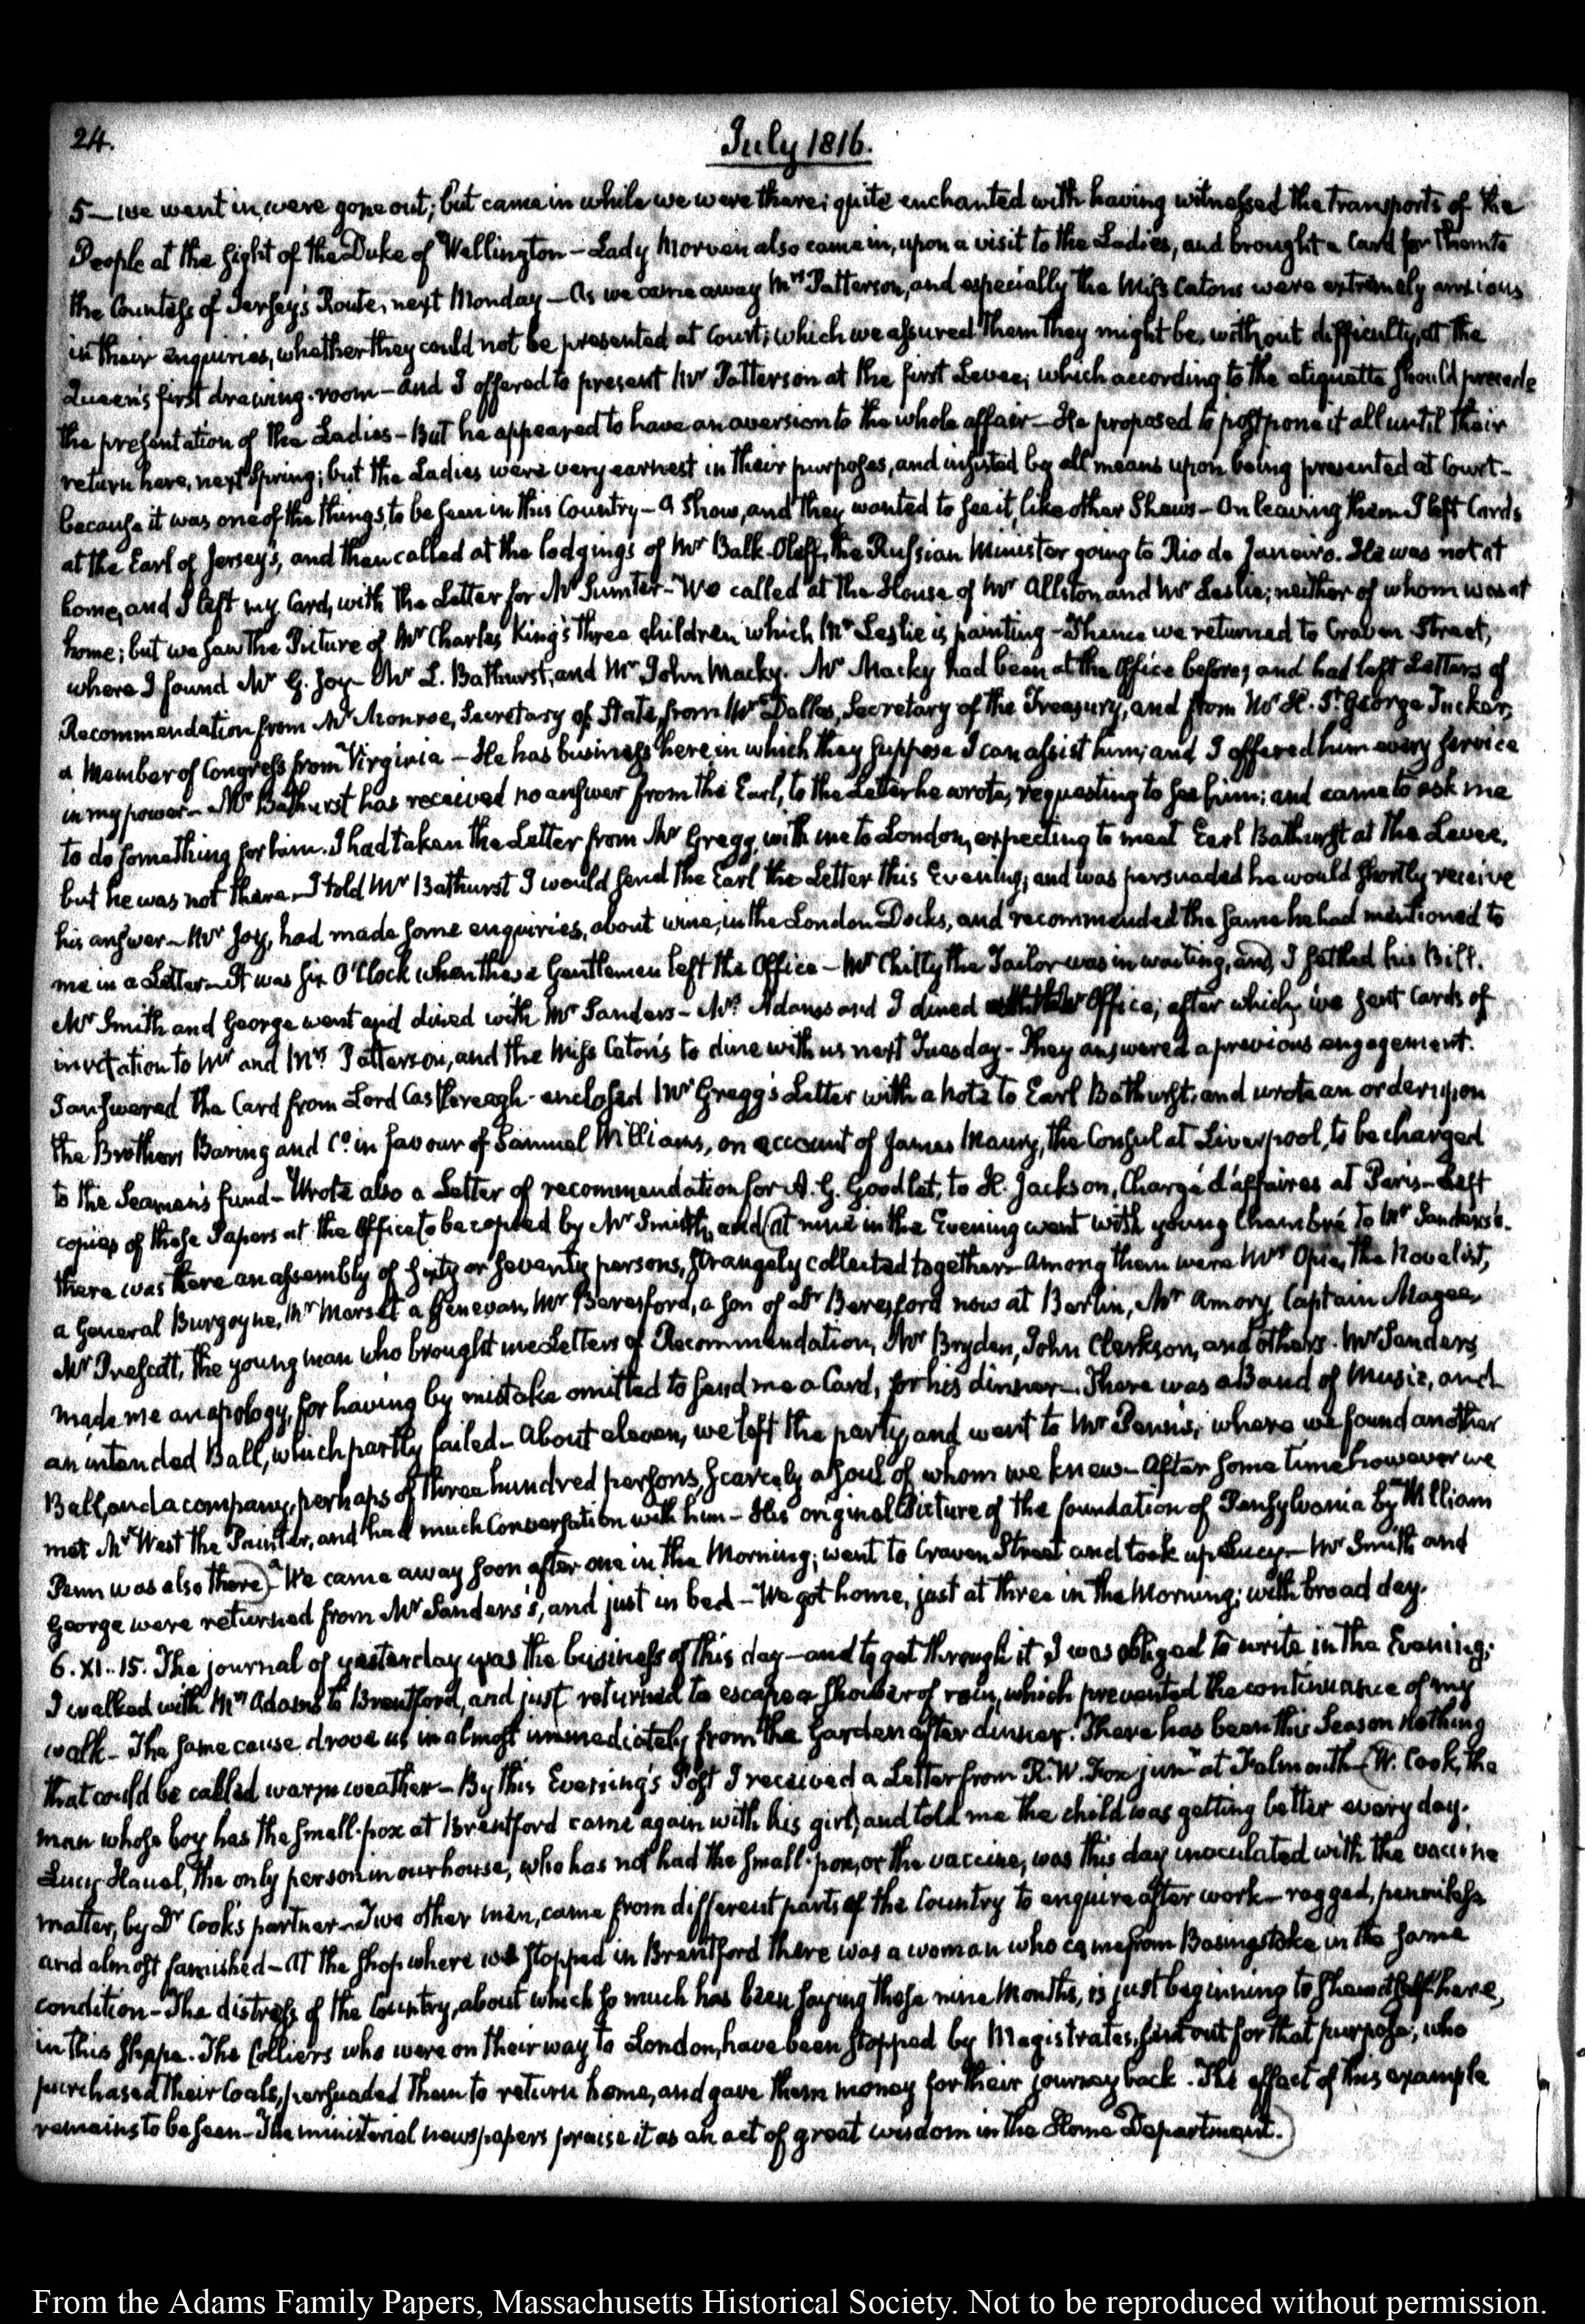 24.
July 1816.
5 — we went in, were gone out; but came in while we were there; quite enchanted with having witnessed the transports of the
People at the sight of the Duke of Wellington — Lady Morven also came in, upon a visit to the Ladies, and brought a Card for them to
the Countess of Jersey's Route, next Monday — As we came away Mrs Patterson, and especially the Miss Catons were extremely anxious
in their enquiries, whether they could not be presented at Court; which we assured them they might be, without difficulty, at the
Queen's first drawing-room — and I offered to present Mr Patterson at the first Levee; which according to the etiquette should precede
the presentation of the Ladies — But he appeared to have an aversion to the whole affair — He proposed to postpone it all until their
return here, next Spring; but the Ladies were very earnest in their purposes, and insisted by all means upon being presented at Court —
because it was one of the things, to be seen in this Country — A Show, and they wanted to see it, like other Shews — On leaving them I left Cards
at the Earl of Jersey's, and then called at the lodgings of Mr Balk-Oleff, the Russian Minister going to Rio de Janeiro. He was not at
home, and I left my Card, with the Letter for Mr Sumter — We called at the House of Mr Allston and Mr Leslie; neither of whom was at
home; but we saw the Picture of Mr Charles King's three children which Mr Leslie is painting — Thence we returned to Craven Street,
where I found Mr G. Joy — Mr L. Bathurst, and Mr John Macky. Mr Macky had been at the Office before; and had left Letters of
Recommendation from Mr Monroe, Secretary of State, from Mr Dallas, Secretary of the Treasury, and from Mr H. St. George Tucker,
a Member of Congress from Virginia — He has business here, in which they suppose I can assist him; and I offered him every service
in my power — Mr Bathurst has received no answer from the Earl, to the Letter he wrote, requesting to see him; and came to ask me
to do something for him. I had taken the Letter from Mr Gregg, with me to London, expecting to meet Earl Bathurst at the Levee,
but he was not there — I told Mr Bathurst I would send the Earl the Letter this Evening; and was persuaded he would shortly receive
his answer — Mr Joy, had made some enquiries, about wine, in the London Docks, and recommended the same he had mentioned to
me in a Letter — It was six O'Clock when these Gentlemen left the Office — Mr Chitty the Tailor was in waiting, and I settled his Bill.
Mr Smith and George went and dined with Mr Sanders — Mrs Adams and I dined at the Office; after which, we sent Cards of
invitation to Mr and Mrs Patterson, and the Miss Caton's to dine with us next Tuesday — They answered a previous engagement.
I answered the Card from Lord Castlereagh — enclosed Mr Gregg's Letter with a note to Earl Bathurst, and wrote an order upon
the Brothers Baring and Co. in favour of Samuel Williams, on account of James Maury, the Consul at Liverpool, to be charged
to the Seamen's fund — Wrote also a Letter of recommendation for A. G. Goodlet, to H. Jackson, Chargé d'affaires at Paris — Left
copies of these Papers at the Office to be copied by Mr Smith, and (at nine in the Evening went with young Chambré to Mr Sanders's.
there was there an assembly of sixty or seventy persons, strangely collected together — Among them were Mrs Opie, the Novelist,
a General Burgoyne, Mr Marset a Genevan, Mr Beresford, a son of Dr Beresford now at Berlin, Mr Amory, Captain Magee,
Mr Prescott, the young man who brought me Letters of Recommendation, Mr Bryden, John Clarkson, and others. Mr Sanders
made me an apology, for having by mistake omitted to send me a Card, for his dinner — There was a Band of Music, and
an intended Ball, which partly failed — About eleven, we left the party, and went to Mr Penn's; where we found another
Ball, and a company, perhaps of three hundred persons, scarcely a soul of whom we knew — After some time however we
met Mr West the Painter, and had much Conversation with him — His original Picture of the foundation of Pensylvania by William
Penn was also there) — We came away soon after one in the Morning; went to Craven Street and took up Lucy — Mr Smith and
George were returned from Mr Sanders's, and just in bed — We got home, just at three in the Morning; with broad day.
6. XI..15. The journal of yesterday was the business of this day — and to get through it, I was obliged to write in the Evening;
I walked with Mrs Adams to Brentford, and just returned to escape a shower of rain, which prevented the continuance of my
walk — The same cause drove us in almost immediately from the Garden after dinner. There has been this Season nothing
that could be called warm weather — By this Evening's Post I received a Letter from R. W. Fox junr. at Falmouth — (W. Cook, the
man whose boy has the small-pox at Brentford came again with his girl, and told me the child was getting better every day.
Lucy Hauel, the only person in our house, who has not had the small-pox, or the vaccine, was this day inoculated with the vaccine
matter, by Dr Cook's partner — Two other men, came from different parts of the Country to enquire after work — ragged, penniless
and almost famished — At the shop where we stopped in Brentford there was a woman who came from Basingstoke in the same
condition — The distress of the Country, about which so much has been saying these nine Months, is just beginning to shew itself here,
in this shape. The Colliers who were on their way to London, have been stopped by Magistrates, sent out for that purpose; who
purchased their Coals, persuaded them to return home, and gave them money for their journey back. The effect of this example
remains to be seen — The ministerial newspapers praise it as an act of great wisdom in the Home Department.)
From the Adams Family Papers, Massachusetts Historical Society. Not to be reproduced without permission.